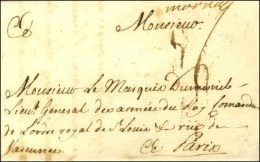 Monsieur
Monsieur Le Marquis Dumenil
Lieut General des armées du Roy Comandeur
de L'ordre royal de St Louis & rüe de
Varenne
Paris